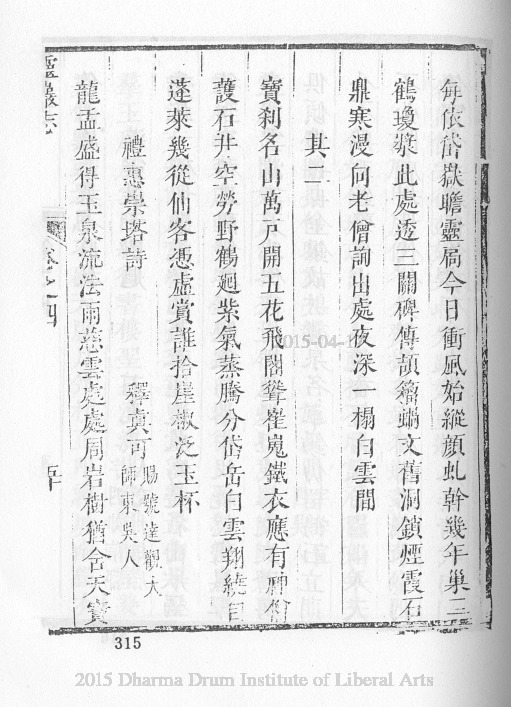 每依岱嶽瞻靈扃今日衝風始縱顏虬幹幾年巢三
鶴瓊漿此處透三關碑傳頡籀蝌文舊洞鎖煙霞石
鼎寒漫向老僧詢出處夜深一榻白雲閒
其二
寶刹名山萬戸開五花飛閣聳崔嵬鐵衣應有神僧
護石井空勞野鶴廻紫氣蒸騰分岱岳白雲翔繞自
蓬萊幾從仙客憑虛賞誰拾崖椒泛玉杯
禮惠崇塔詩 釋真可 賜號達觀大師東吳人
龍盂盛得玉泉流法雨慈雲處處周岩樹猶含天寶
靈巖志 卷之四 五十
315
2015-04-1
2015 Dharma Drum Institute of Liberal Arts